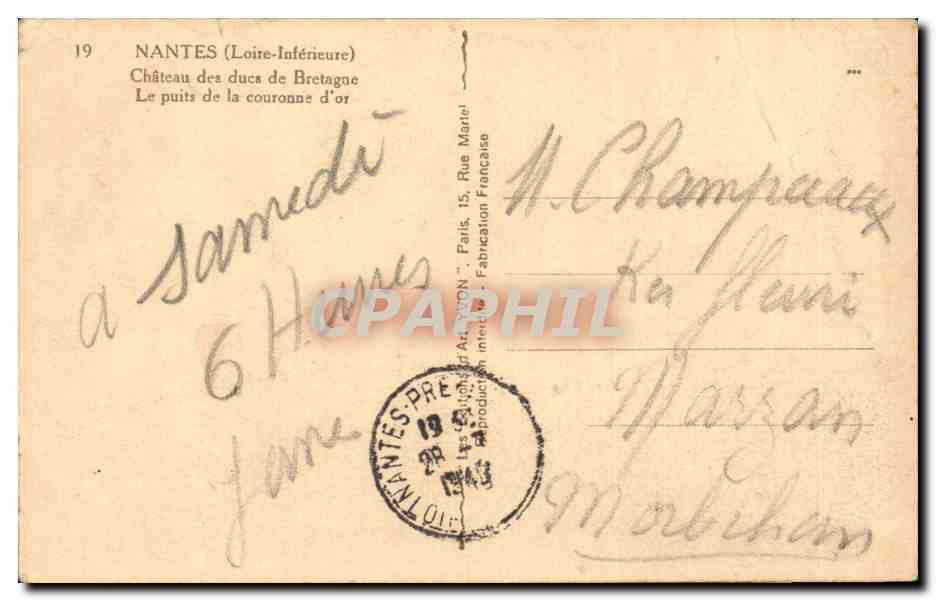 19 NANTES (Loire-Inférieure)
Château des ducs de Bretagne
Le puits de la couronne d'or
a samedi
6 Heures
Jane
Les Editions d'Art "YVON". Paris, 15, Rue Martel
Reproduction interdite - Fabrication Française
M. Champeaux
Ker fleuri
Marzan
Morbihan
NANTES-PRE
19
28
1940
CPAPHIL